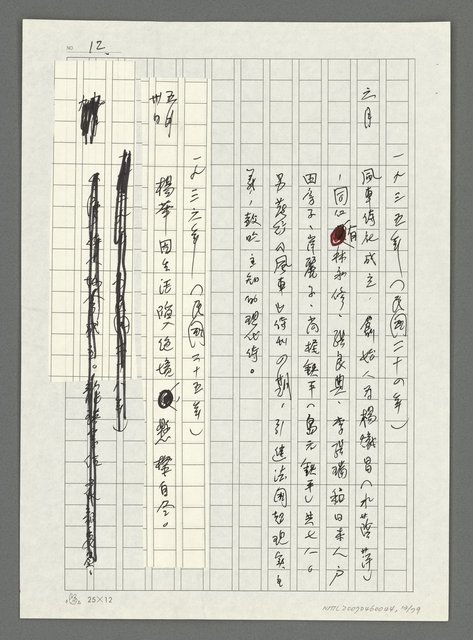 NO. 12.
一九三五年—(民國二十四年)
六月
風車詩社成立，創始人為楊熾昌(水蔭萍)
，同仁有林永修、張良典、李張瑞和日本人戶
田房子、岸麗子、尚梶鐵平(島元鐵平)共七人。
另發行《風車》詩刊四期，引進法國超現實主
義，鼓吹主知的現代詩。
一九三六年—(民國二十五年)
五月
卅日
楊華因生活陷入絕境，懸樑自盡。
25×12
NMTL20070460044, 12/79